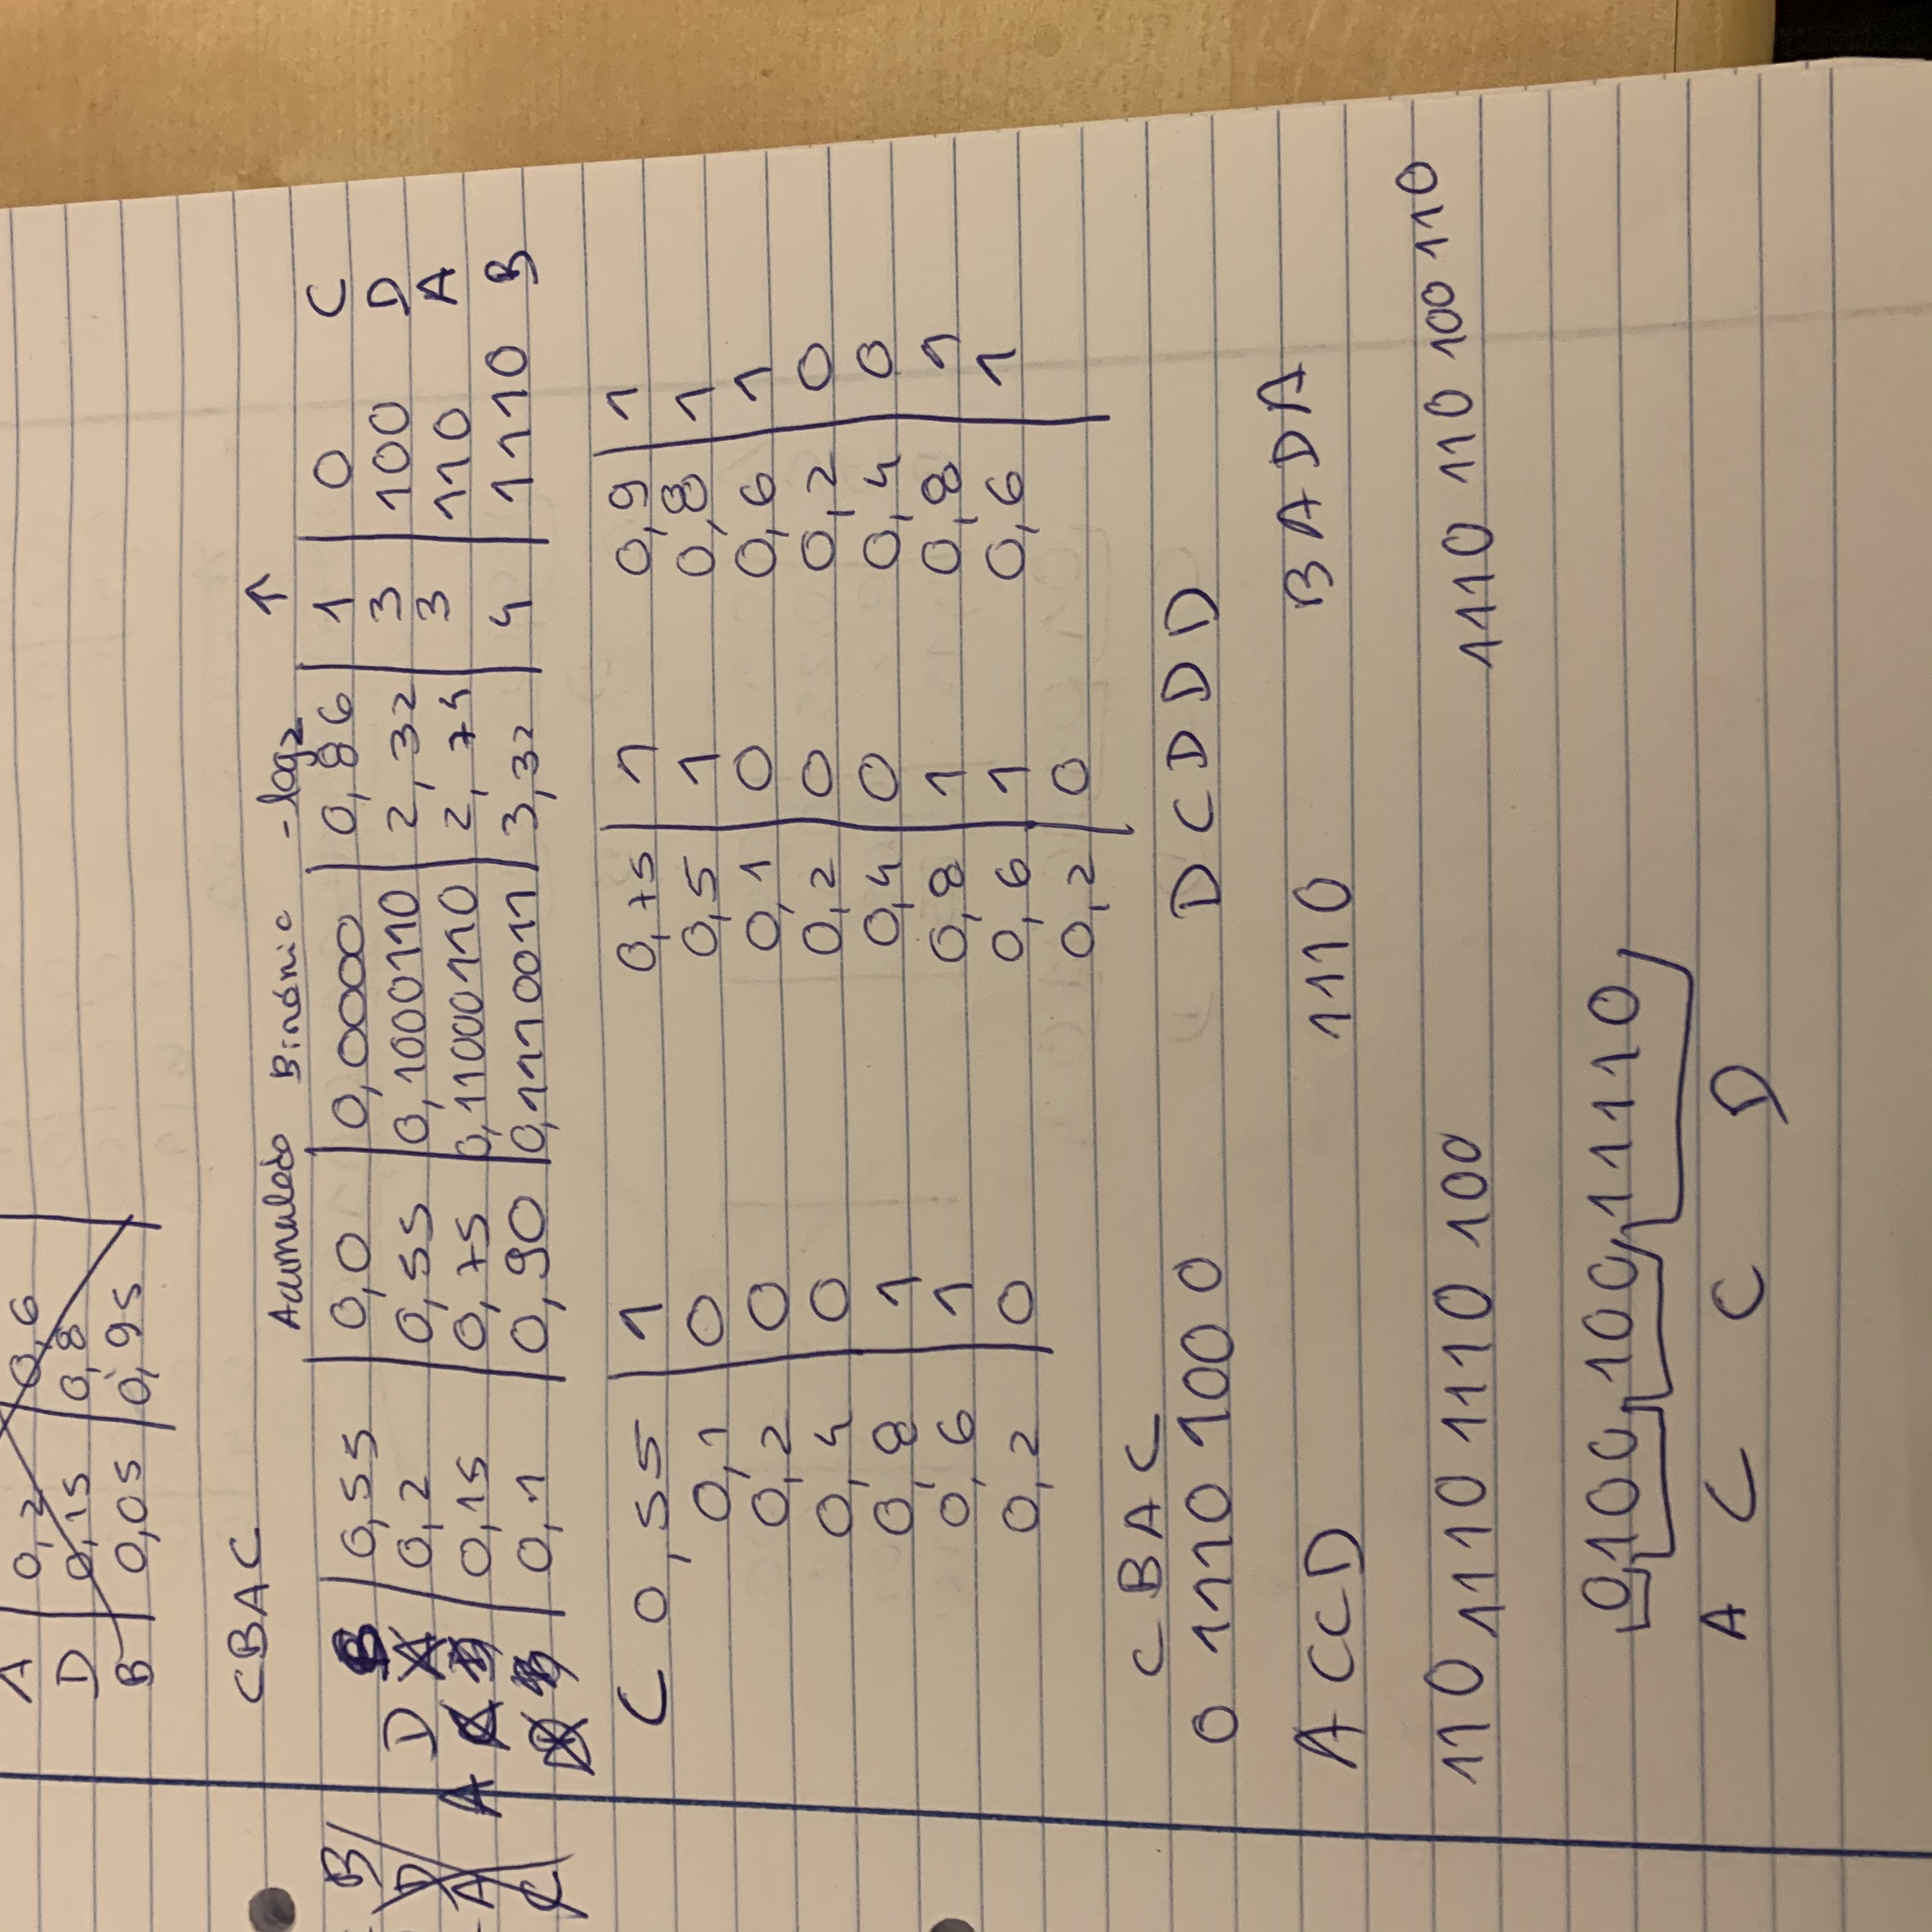 A 0,2 0,6
D 0,15 0,8
B 0,05 0,95
CBAC
Acumulado Binário -log2 ↑
B 0,55 0,0 0,0000 0,86 1 0 C
D A 0,2 0,55 0,1000110 2,32 3 100 D
A 0,15 0,75 0,11000110 2,74 3 110 A
0,1 0,90 0,1110011 3,32 4 1110 B
B
D
A
C
C 0,55 1 0,75 1 0,9 1
0,1 0 0,5 1 0,8 1
0,2 0 0,1 0 0,6 1
0,4 0 0,2 0 0,2 0
0,8 1 0,4 0 0,4 0
0,6 1 0,8 1 0,8 1
0,2 0 0,6 1 0,6 1
0,2 0
CBAC
0 1110 100 0 DCDDD
ACCD 1110 BADA
110 1110 1110 100 1110 110 100 110
0100 100 11110
A C C D